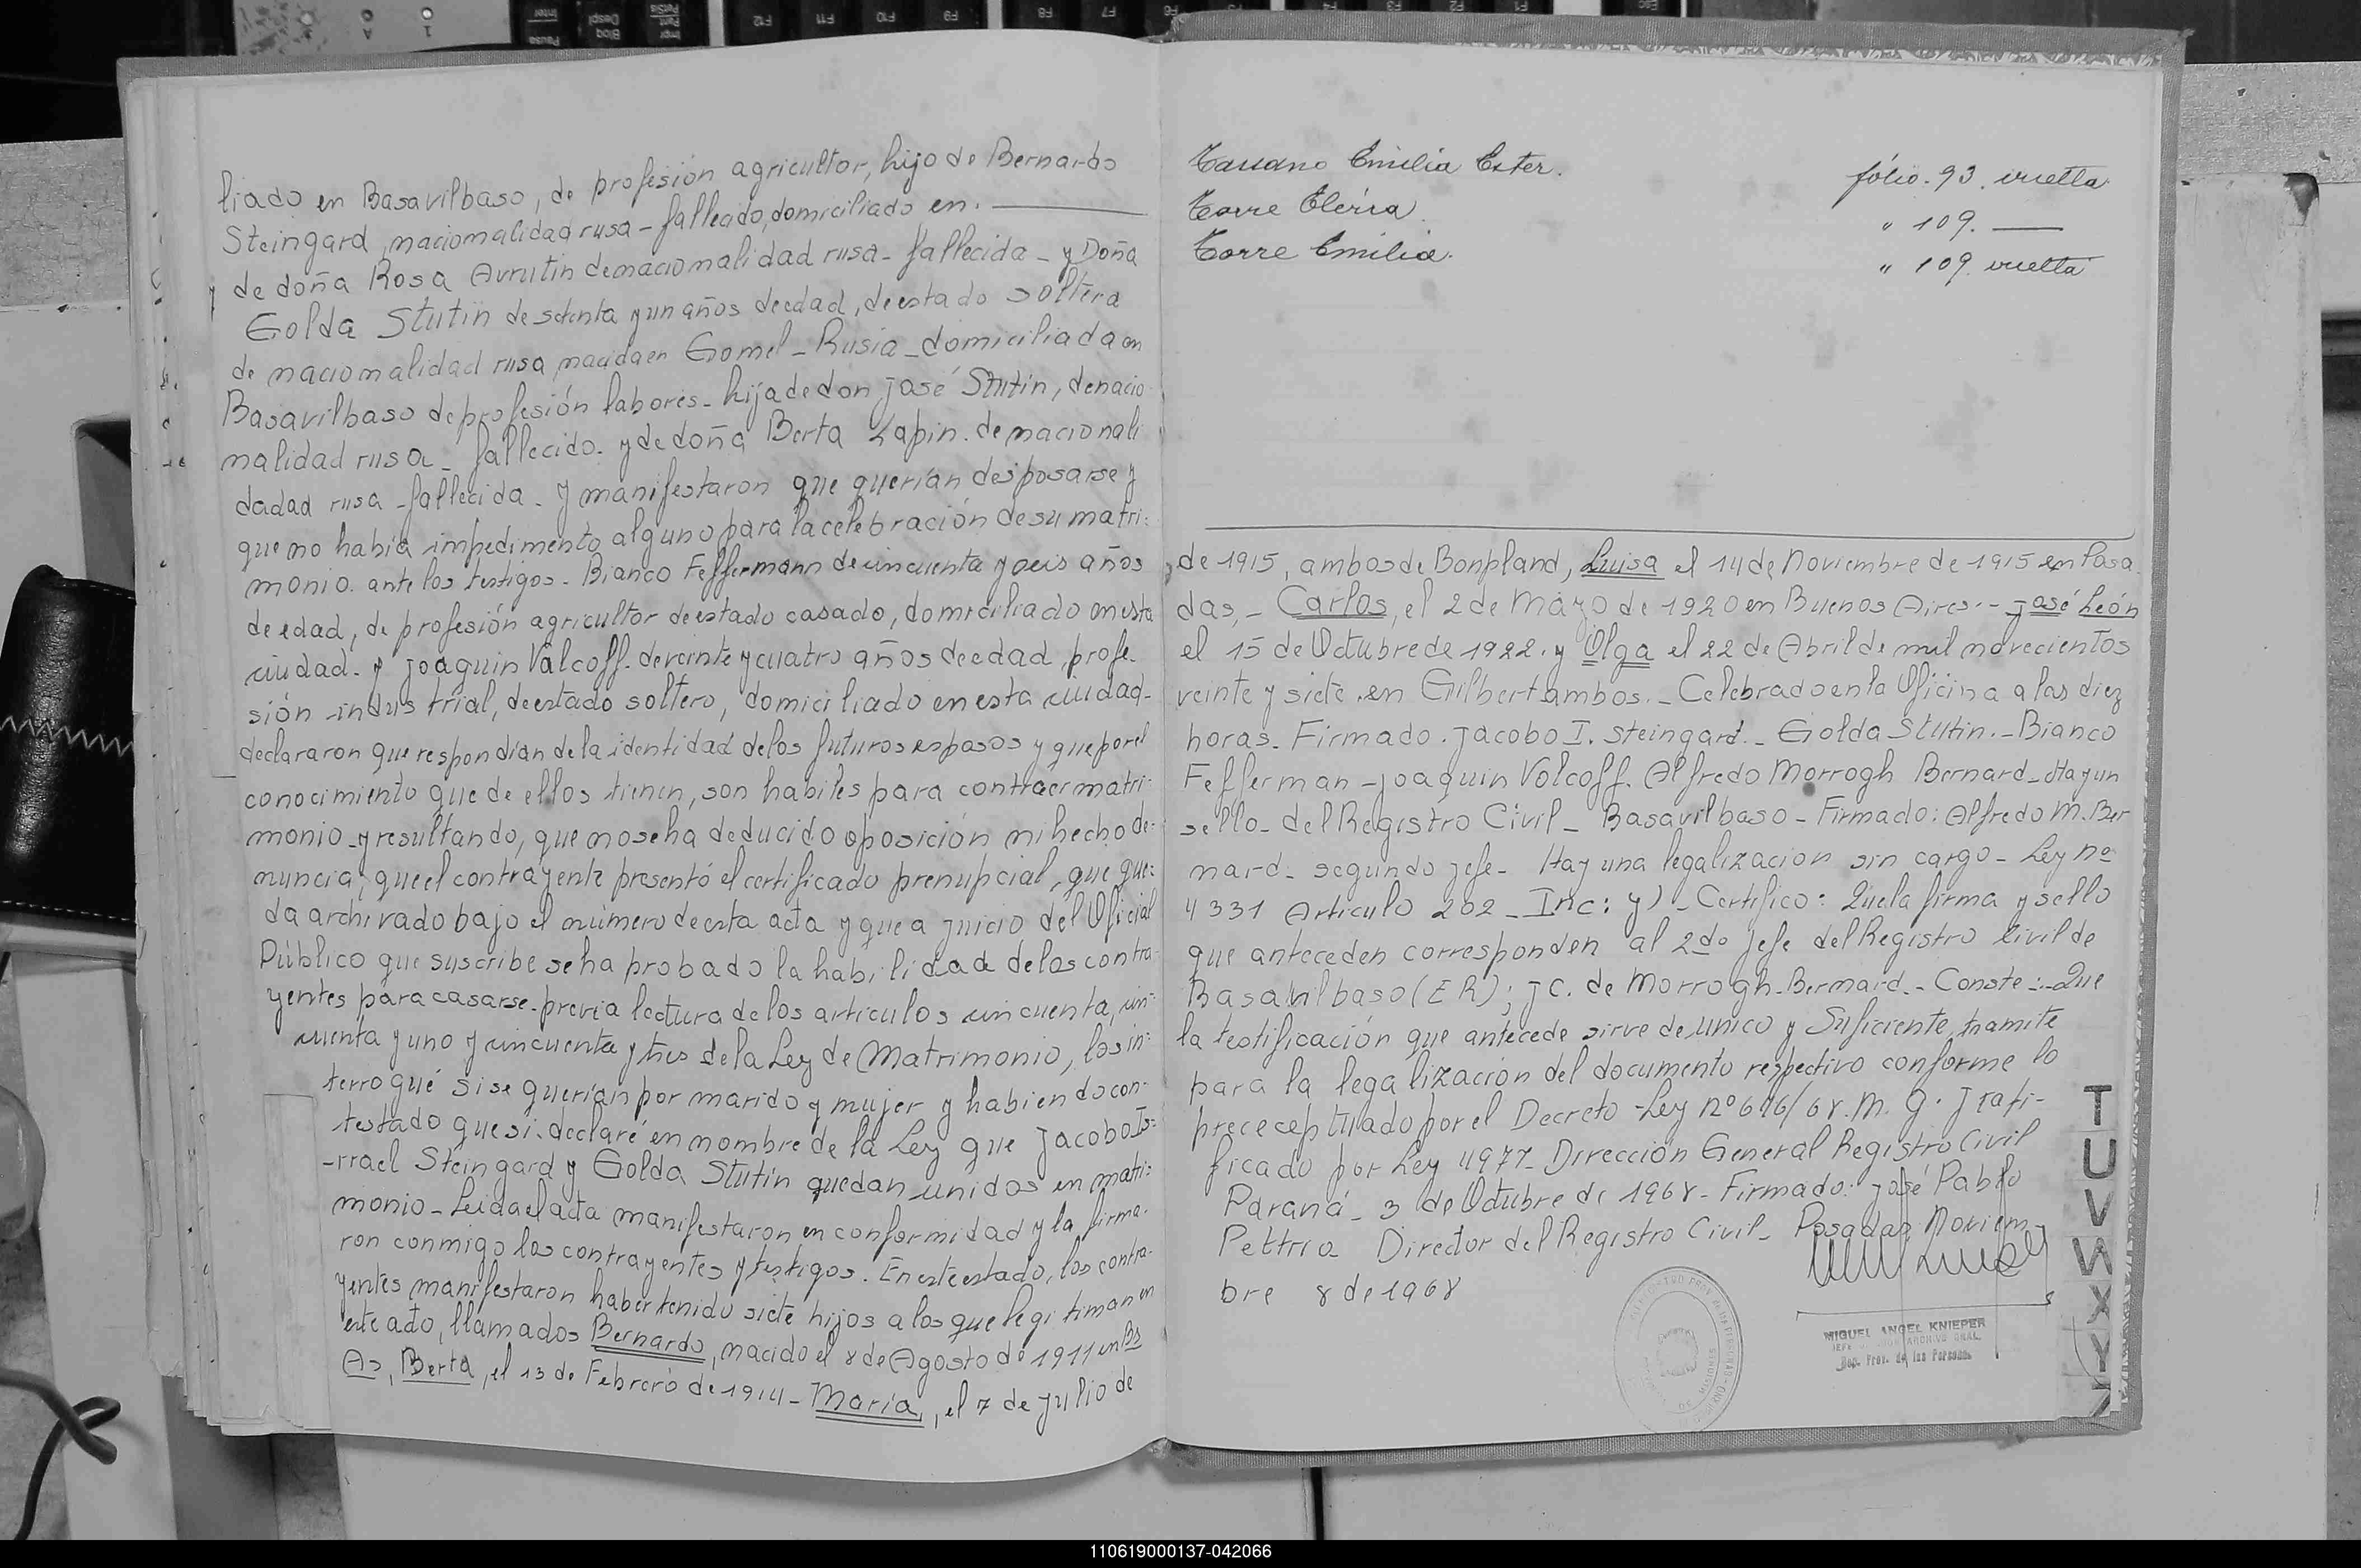 liado en Basavilbaso, de profesión agricultor, hijo de Bernardo
Steingard, nacionalidad rusa - fallecido, domiciliado en.
y de doña Rosa Avrutin de nacionalidad rusa - fallecida - y Doña
Golda Stutin de setenta y un años de edad, de estado soltera
de nacionalidad rusa nacida en Gomel - Rusia - domiciliada en
Basavilbaso de profesión labores - hija de don José Stutin, de nacio
nalidad rusa - fallecido - y de doña Berta Lapin. de nacionali
dadad rusa - fallecida - y manifestaron que querían desposarse y
que no había impedimento alguno para la celebración de su matri:
monio. ante los testigos - Bianco Feffermann de cincuenta y seis años
de edad, de profesión agricultor de estado casado, domiciliado en esta
ciudad - y Joaquin Valcoff. de veinte y cuatro años de edad, profe-
sión industrial, de estado soltero, domiciliado en esta ciudad -
declararon que respondían de la identidad de los futuros esposos y que por el
conocimiento que de ellos tienen, son habiles para contraer matri-
monio - y resultando, que no se ha deducido oposición ni hecho de-
nuncia, que el contrayente presentó el certificado prenupcial, que que:
da archivado bajo el número de esta acta y que a juicio del Oficial
Público que suscribe se ha probado la habilidad de los contra-
yentes para casarse - previa lectura de los articulos cincuenta, cin-
cuenta y uno y cincuenta y tres de la Ley de Matrimonio, los in:
terrogué si se querían por marido y mujer y habiendo con-
testado que si. declaré en nombre de la Ley que Jacobo Is:
-rrael Steingard y Golda Stutin quedan unidos en matri:
monio - Leida el acta manifestaron en conformidad y la firma-
ron conmigo los contrayentes y testigos. En este estado, los contra-
yentes manifestaron haber tenido siete hijos a los que legitiman en
este acto, llamados Bernardo, nacido el 8 de Agosto de 1911 en Bs
As, Berta, el 13 de Febrero de 1914 - María, el 7 de Julio de
Emilia Ester. fólio. 93. vuelta.
Torre Eléria. " 109.
Torre Emilia. " 109. vuelta
de 1915, ambos de Bonpland, Luisa el 14 de Noviembre de 1915 en Posa
das, - Carlos, el 2 de Mayo de 1920 en Buenos Aires. - José León
el 15 de Octubre de 1922. y Olga el 22 de Abril de mil novecientos
veinte y siete. en Gilbert ambos. - Celebrado en la Oficina a las diez
horas - Firmado. Jacobo I. Steingard. - Golda Stutin. - Bianco
Fefferman - Joaquin Volcoff. Alfredo Morrogh Bernard - Hay un
sello - del Registro Civil - Basavilbaso - Firmado: Alfredo M. Ber
nard - segundo jefe - Hay una legalización sin cargo - Ley nº
4331 Articulo 202 - Inc: y) - Certifico: Que la firma y sello
que anteceden corresponden al 2do Jefe del Registro Civil de
Basavilbaso (E R); J C. de Morrogh - Bernard. - Conste: - Que
la testificación que antecede sirve de unico y Suficiente, tramite
para la legalización del documento respectivo conforme lo
prececeptuado por el Decreto - Ley nº 616/68. M. G. J rati-
ficado por Ley 4977 - Dirección General Registro Civil
Paraná - 3 de Octubre de 1968 - Firmado: José Pablo
Pettria Director del Registro Civil - Posadas, Noviem-
bre 8 de 1968
MIGUEL ANGEL KNIEPER
Rep. Prov. de las Personas
T
U
V
W
X
Y
Z
110619000137-042066